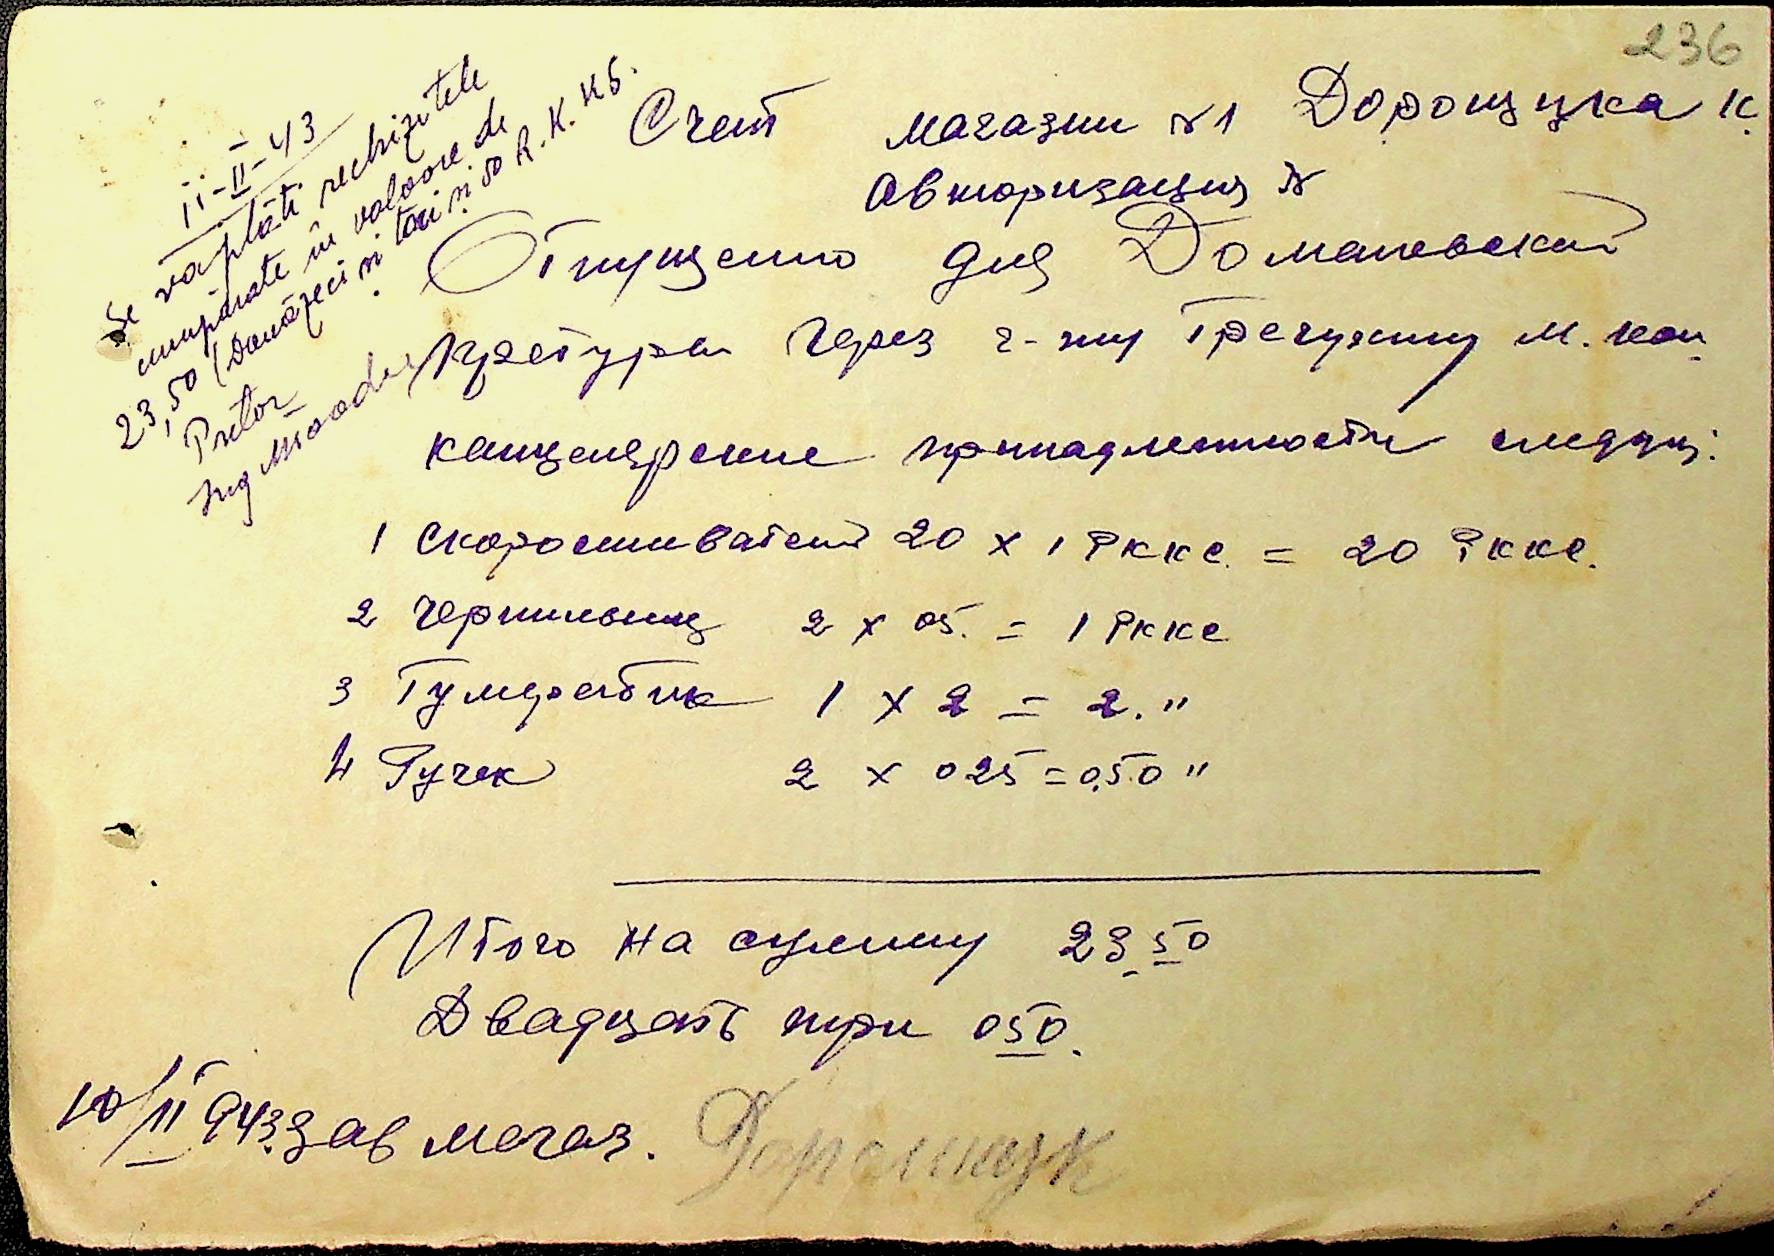 236
Счет магазин №1 Дорощука К.
Авторизация №
Отпущено для Доманевской
Претуры через г-жу Гречухину М. кан
канцелярские принадлежности следующ:
1 Скоросшивателей 20 × 1 РККС. = 20 РККС.
2 Чернильниц 2 × 05. = 1 РККС
3 Гумирабик 1 × 2 = 2. "
4 Ручек 2 × 025 = 0,50 "
Итого на сумму 23,50
Двадцать три 050.
10/II 943 Зав магаз. Дорощук
11-II-43
Se va plăti rechizitele
cumpărate în valoare de
23,50 (Douăzeci și trei și 50 R.K.KS.
Pretor